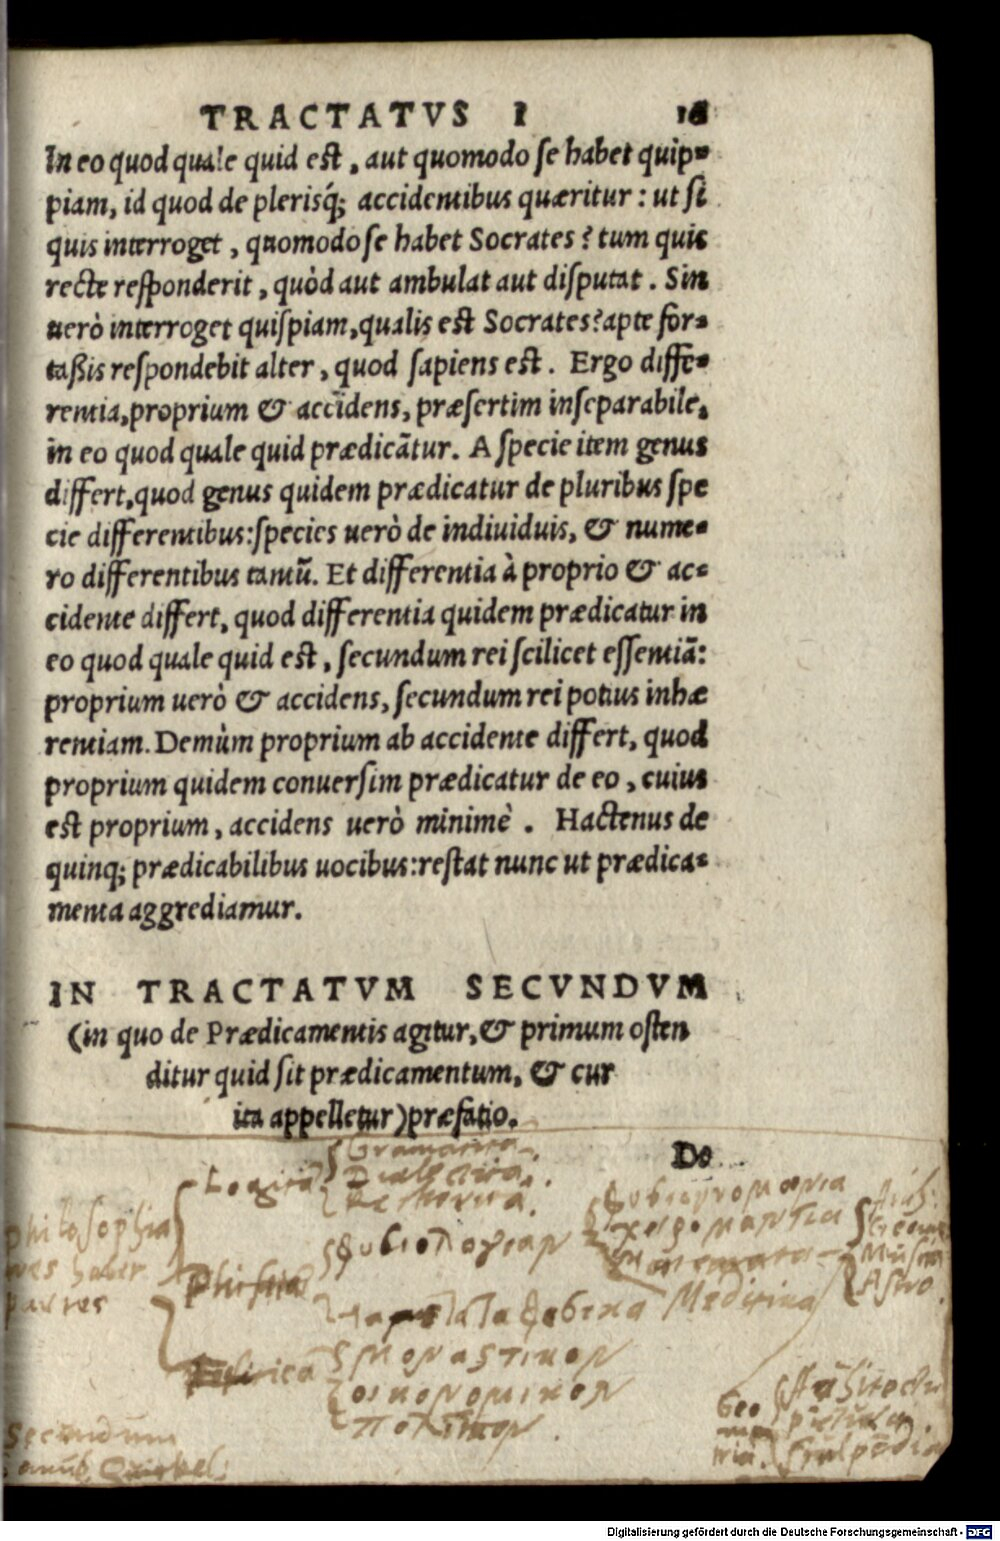 TRACTATVS I 16
In eo quod quale quid est, aut quomodo se habet quip-
piam, id quod de plerisq́; accidentibus quæritur: ut si
quis interroget, quomodo se habet Socrates? tum quis
recte responderit, quòd aut ambulat aut disputat. Sin
uerò interroget quispiam, qualis est Socrates? apte for-
taßis respondebit alter, quod sapiens est. Ergo diffe-
rentia, proprium & accidens, præsertim inseparabile,
in eo quod quale quid prædicātur. A specie item genus
differt, quod genus quidem prædicatur de pluribus spe
cie differentibus: species uerò de indiuiduis, & nume-
ro differentibus tantū. Et differentia à proprio & ac-
cidente differt, quod differentia quidem prædicatur in
eo quod quale quid est, secundum rei scilicet essentiā:
proprium uerò & accidens, secundum rei potius inhæ
rentiam. Demùm proprium ab accidente differt, quod
proprium quidem conuersim prædicatur de eo, cuius
est proprium, accidens uerò minimè. Hactenus de
quinq; prædicabilibus uocibus: restat nunc ut prædica-
menta aggrediamur.
IN TRACTATVM SECVNDVM
(in quo de Prædicamentis agitur, & primum osten
ditur quid sit prædicamentum, & cur
ita appelletur) præfatio.
De
Philosophia
partes
Logica
Gramatica
Dialectica
Rethorica
Phisica
Medicina
μοναστικον
οικονομικον
Musica
Astro
Geo
me
tria.
pictura
Secundum